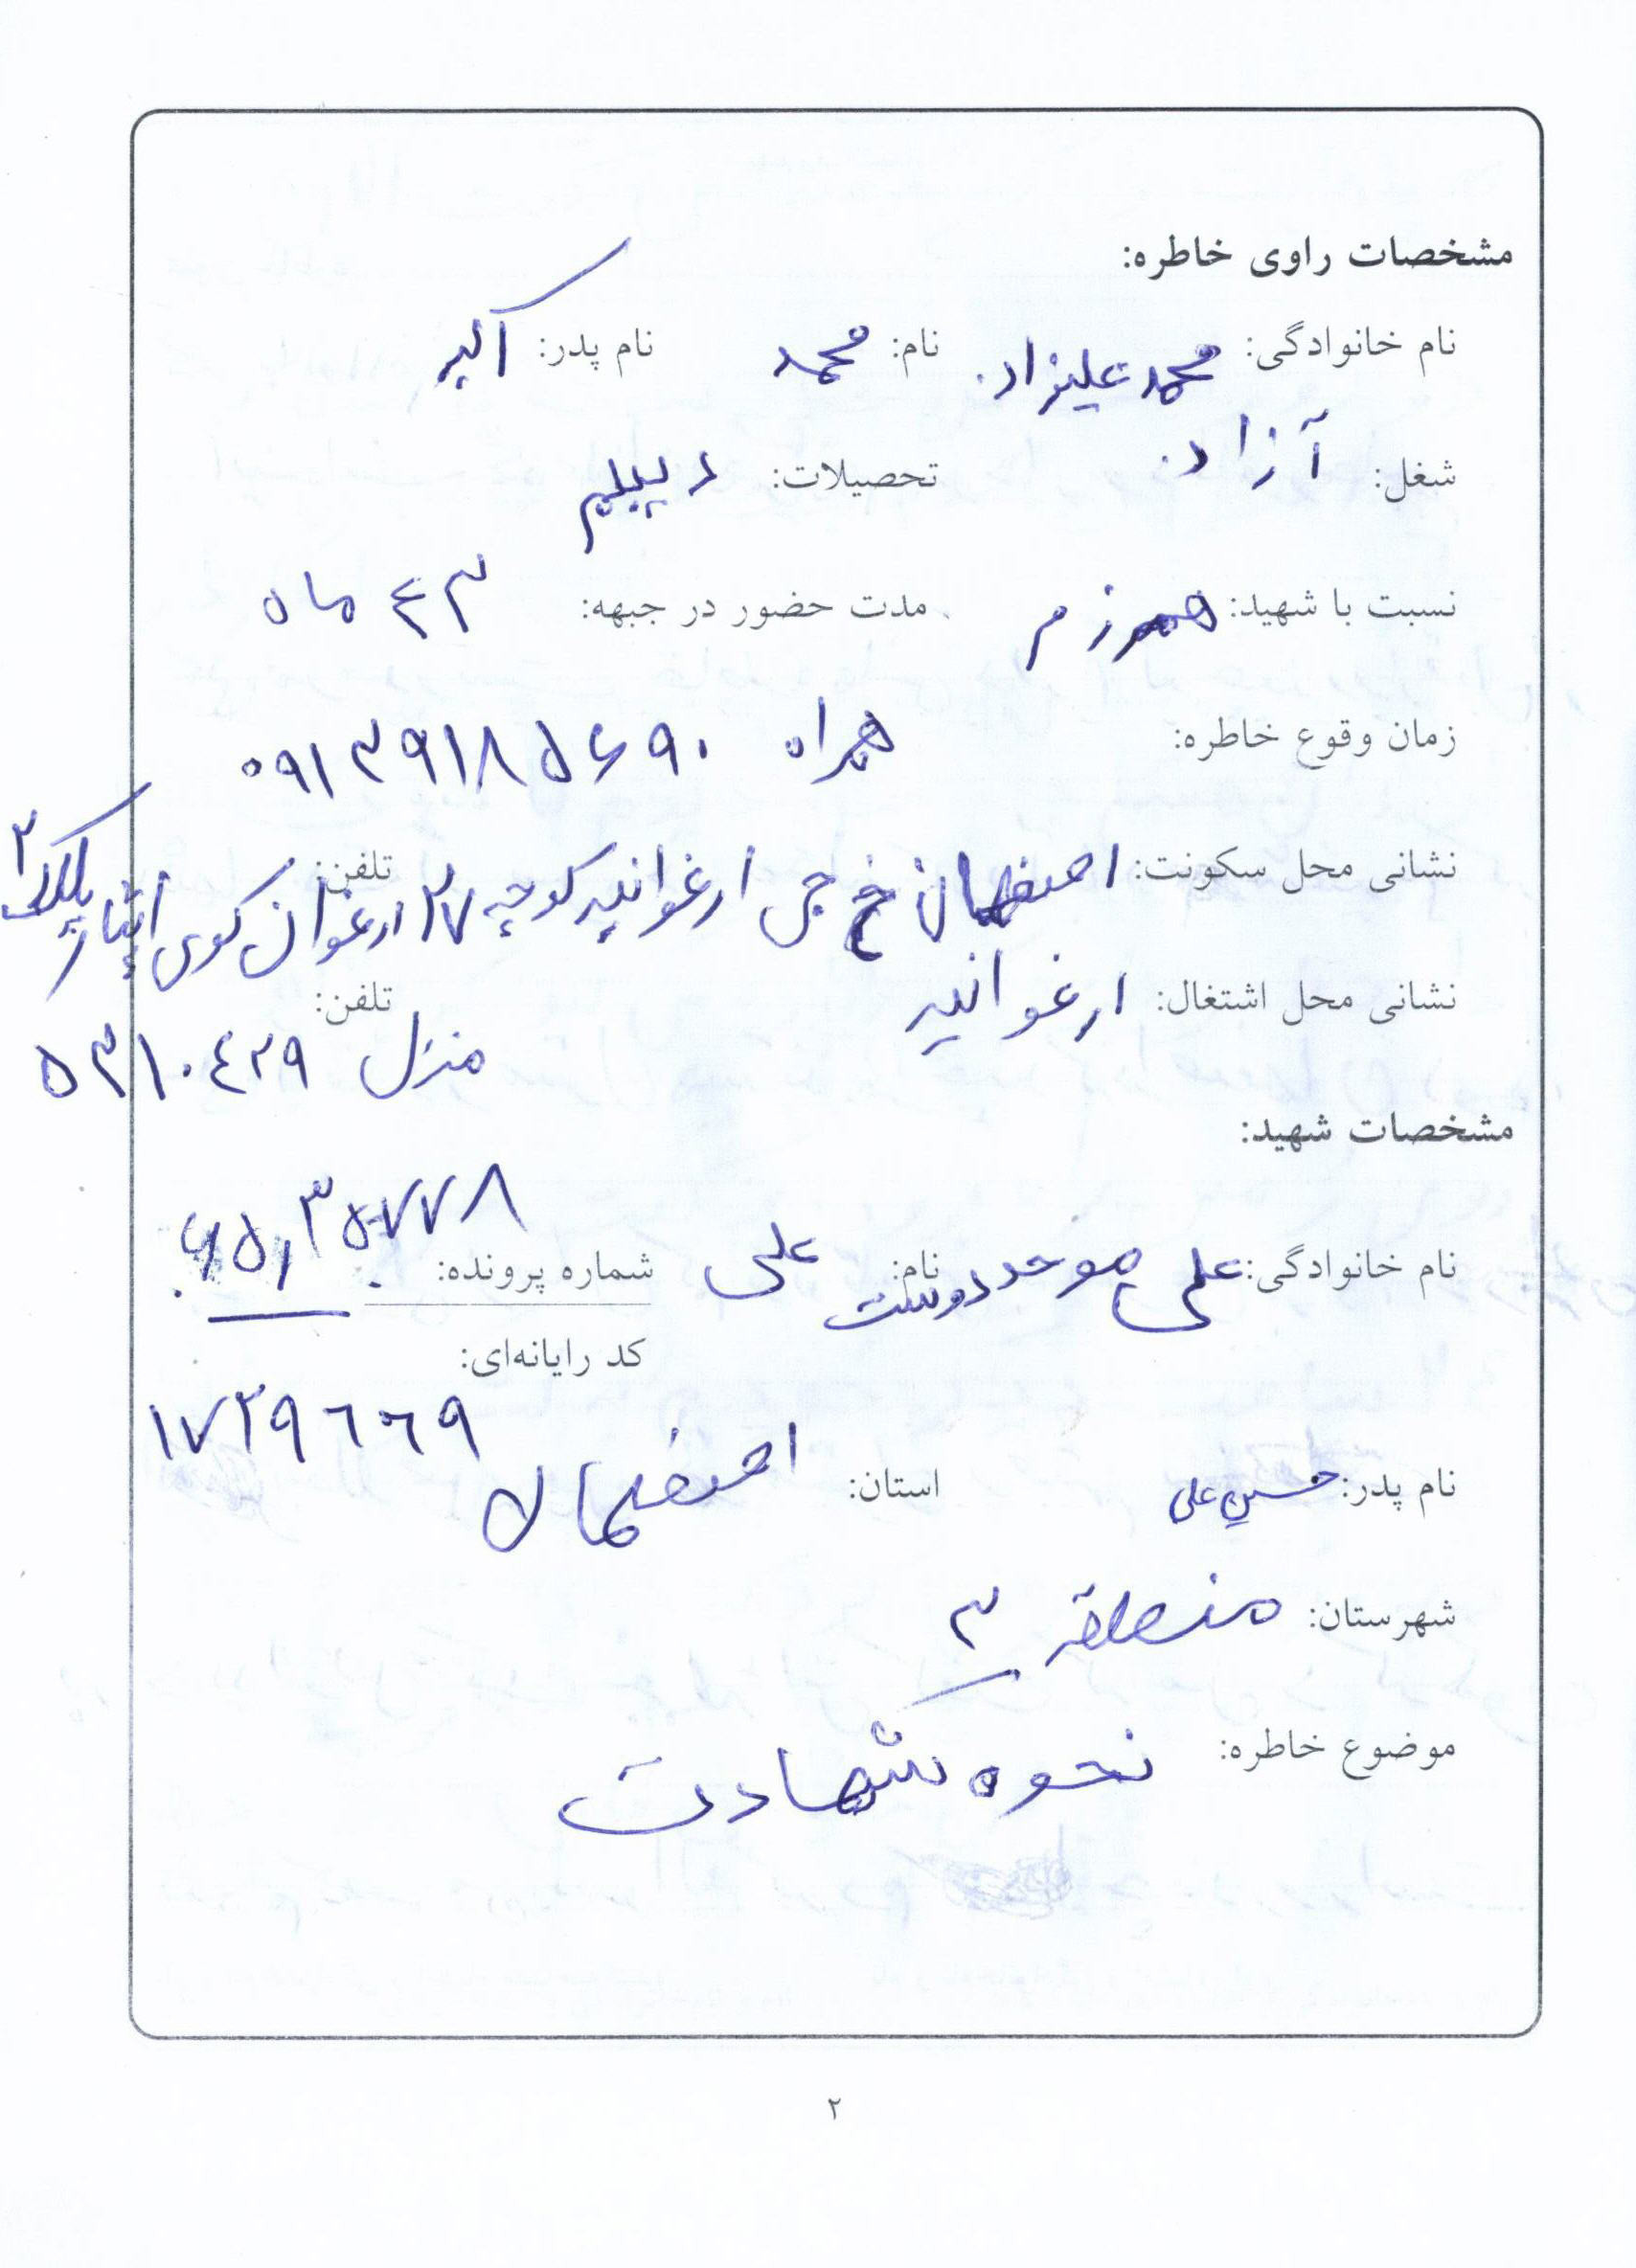 مشخصات راوی خاطره:
نام خانوادگی: محمد علیزاده نام: محمد نام پدر: اکبر
شغل: آزاد تحصیلات: دیپلم
نسبت با شهید: همرزم مدت حضور در جبهه: ۴۳ ماه
زمان وقوع خاطره: همراه ۰۹۱۳۹۱۸۵۶۹۰
نشانی محل سکونت: اصفهان خ جی ارغوانیه کوچه ۲۷ ارغوان کوی ایثار پلاک ۲ تلفن:
نشانی محل اشتغال: ارغوانیه تلفن:
منزل ۵۳۱۰۴۲۹
مشخصات شهید:
نام خانوادگی: علی موحد دوست نام: علی شماره پرونده:
کد رایانه‌ای:
۱۷۲۹۶۶۹
نام پدر: حسین علی استان: اصفهان
شهرستان: منطقه ۳
موضوع خاطره: نحوه شهادت
۲